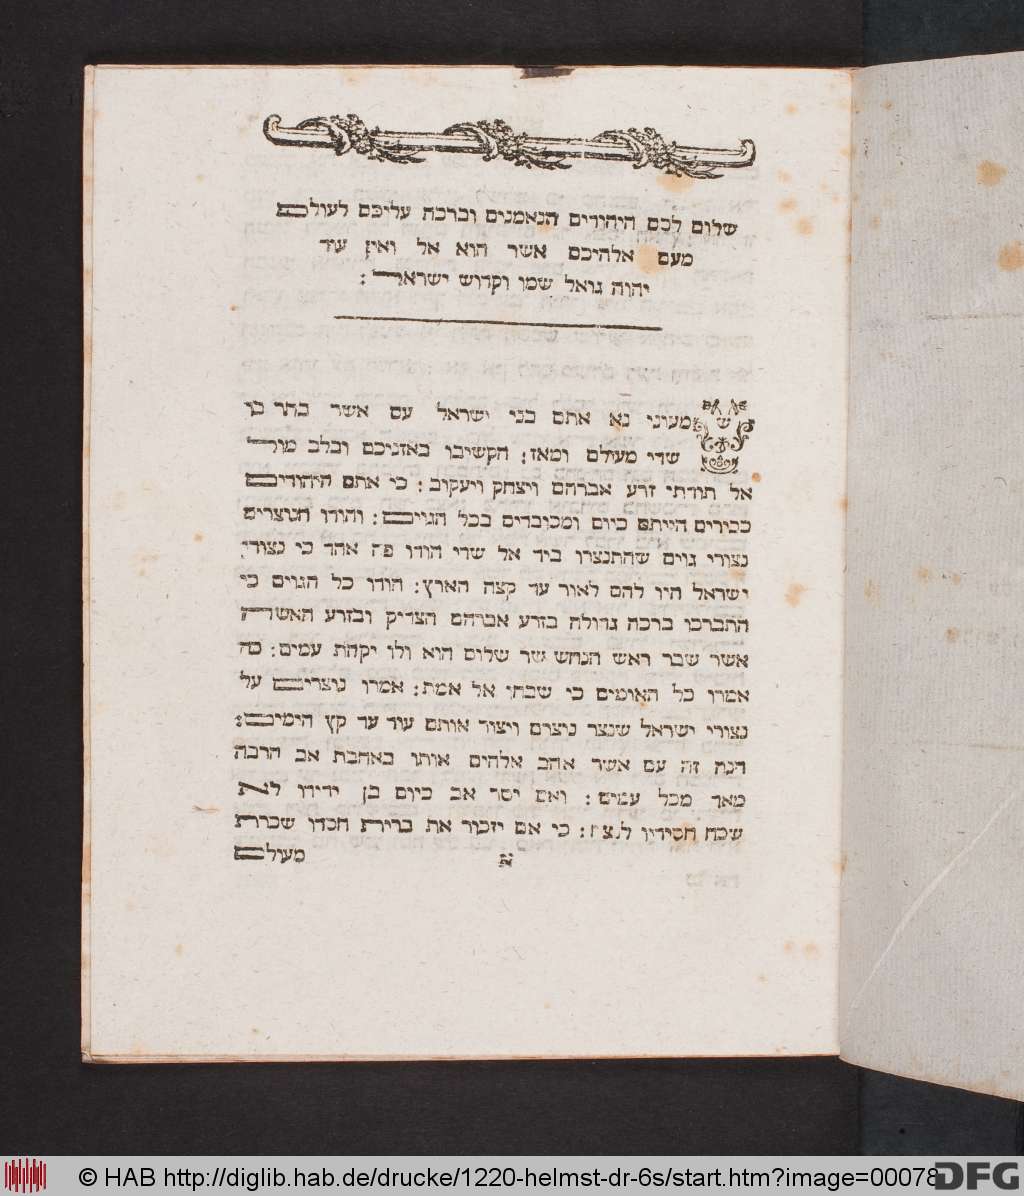 שלום לכם היהודים הנאמנים וברכת עליכם לעולם
מעם אלהיכם אשר הוא אל ואין עוד
יהוה גואל שמו וקדוש ישראל :
שמעוני נא אתם בני ישראל עם אשר בחר בו
שדי מעולם ומאז : הקשיבו באזניכם ובלב
אל תודתי זרע אברהם ויצחק ויעקוב : כי אתם היהודים
כבירים הייתם כיום ומכובדים בכל הגוים : והודו הנוצרים
נצורי גוים שהתנצרו ביד אל שדי הודו פה אחד כי נצורי
ישראל היו להם לאור עד קצה הארץ : הודו כל הגוים כי
התברכו ברכה גדולה בזרע אברהם הצדיק ובזרע האשה
אשר שבר ראש הנחש שר שלום הוא ולו יקהת עמים : כה
אמרו כל האומים כי שבחו אל אמת : אמרו נוצרים על
נצורי ישראל שנצר נוצרים ויצור אותם עוד עד קץ הימים :
הנה זה עם אשר אהב אלהים אותו באהבת אב הרבה
מאד מכל עמים : ואם יסר אב כיום בן ידידו לא
שכח חסידיו לנצח : כי אם יזכור את ברית חסדו שכרת
א מעולם
© HAB http://diglib.hab.de/drucke/1220-helmst-dr-6s/start.htm?image=00078
DFG